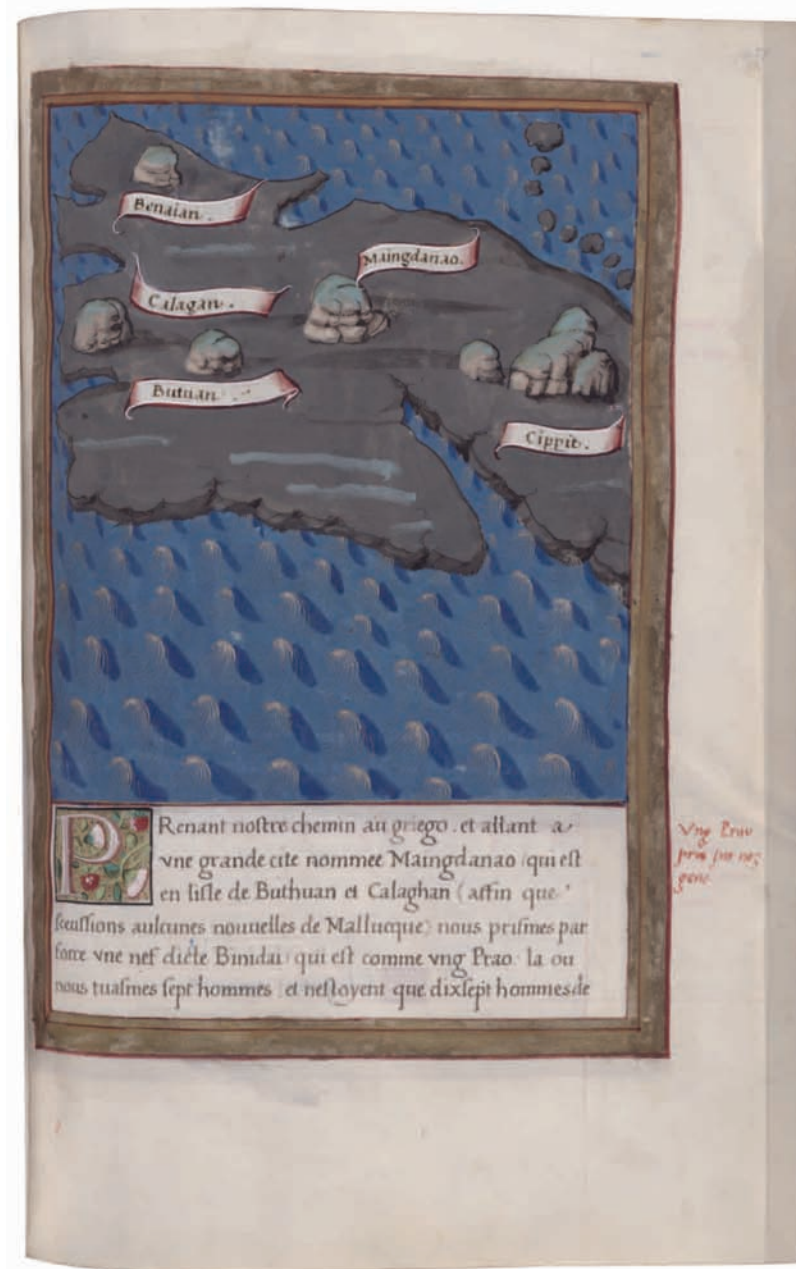 Benaian.
Maingdanao.
Calagan.
Butuan.
Cippit.
PRenant nostre chemin au griego. et allant a
vne grande cite nommee Maingdanao (qui est
en lisle de Buthuan et Calaghan (affin que
sceussions aulcunes nouuelles de Mallucque) nous prismes par
force vne nef dicte Binidai qui est comme vng Prao. la ou
nous tuasmes sept hommes et nestoyent que dixsept hommes de
Vng Prao
pris par noz
gens.